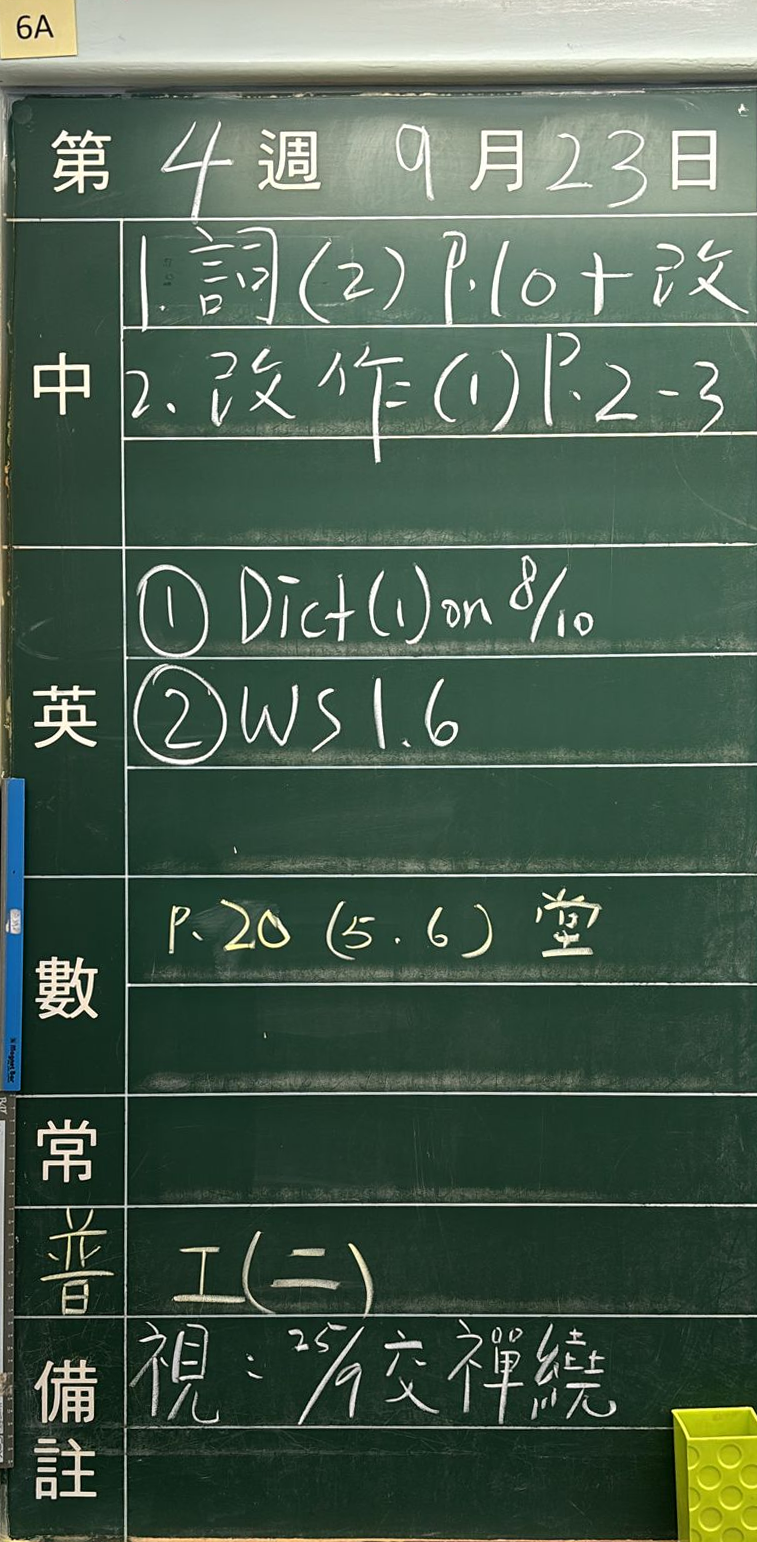 6A
第 4 週 9 月 23 日
中
1. 詞(2) P.10 + 改
2. 改作(1) P.2-3
英
① Dict(1) on 8/10
② WS 1.6
數
P.20 (5.6) 堂
常
普
工(二)
備註
視: 25/9交禪繞